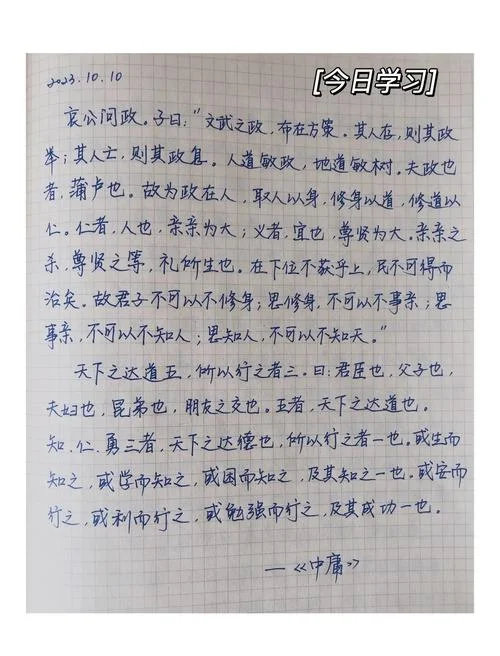 2023.10.10
[今日学习]
哀公问政。子曰:“文武之政,布在方策。其人存,则其政
举;其人亡,则其政息。人道敏政,地道敏树。夫政也
者,蒲卢也。故为政在人,取人以身,修身以道,修道以
仁。仁者,人也,亲亲为大;义者,宜也,尊贤为大。亲亲之
杀,尊贤之等,礼所生也。在下位不获乎上,民不可得而
治矣。故君子不可以不修身;思修身,不可以不事亲;思
事亲,不可以不知人;思知人,不可以不知天。”
天下之达道五,所以行之者三。曰:君臣也,父子也,
夫妇也,昆弟也,朋友之交也。五者,天下之达道也。
知、仁、勇三者,天下之达德也,所以行之者一也。或生而
知之,或学而知之,或困而知之,及其知之一也。或安而
行之,或利而行之,或勉强而行之,及其成功一也。
——《中庸》